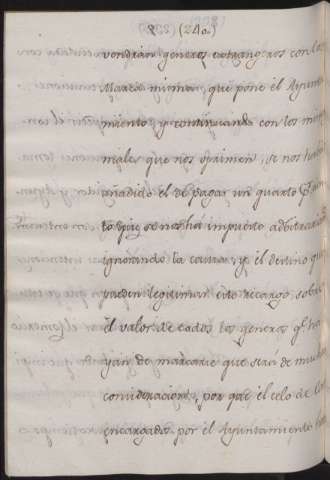 (240)
vendrian generos estrangeros con la
Marca misma, que pone el Ayunta
miento y continuando con los mismos
males que nos oprimen, se nos ha
añadido el de pagar un quarto
to que se nos ha impuesto adbitrariam
ignorando la causa, y el destino que
pueden legitimar este recargo, sobre
el valor de todos los generos qe ha
yan de marcarse que será de mucha
consideracion, por que el celo de los
encargados por el Ayuntamiento